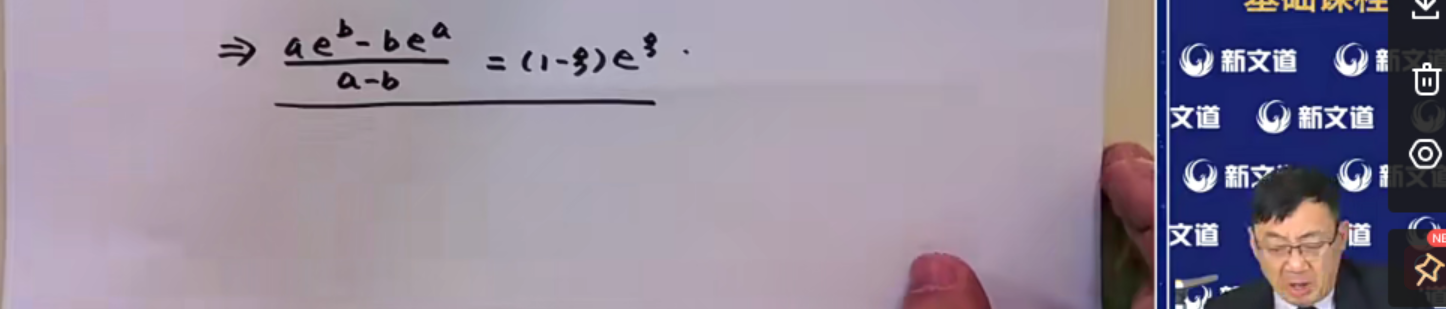 ⇒ (ae^b - be^a)/(a-b) = (1-ξ)e^ξ.
基础课程
新文道 新文
文道 新文道
新文道 新文道
文道 道
NE